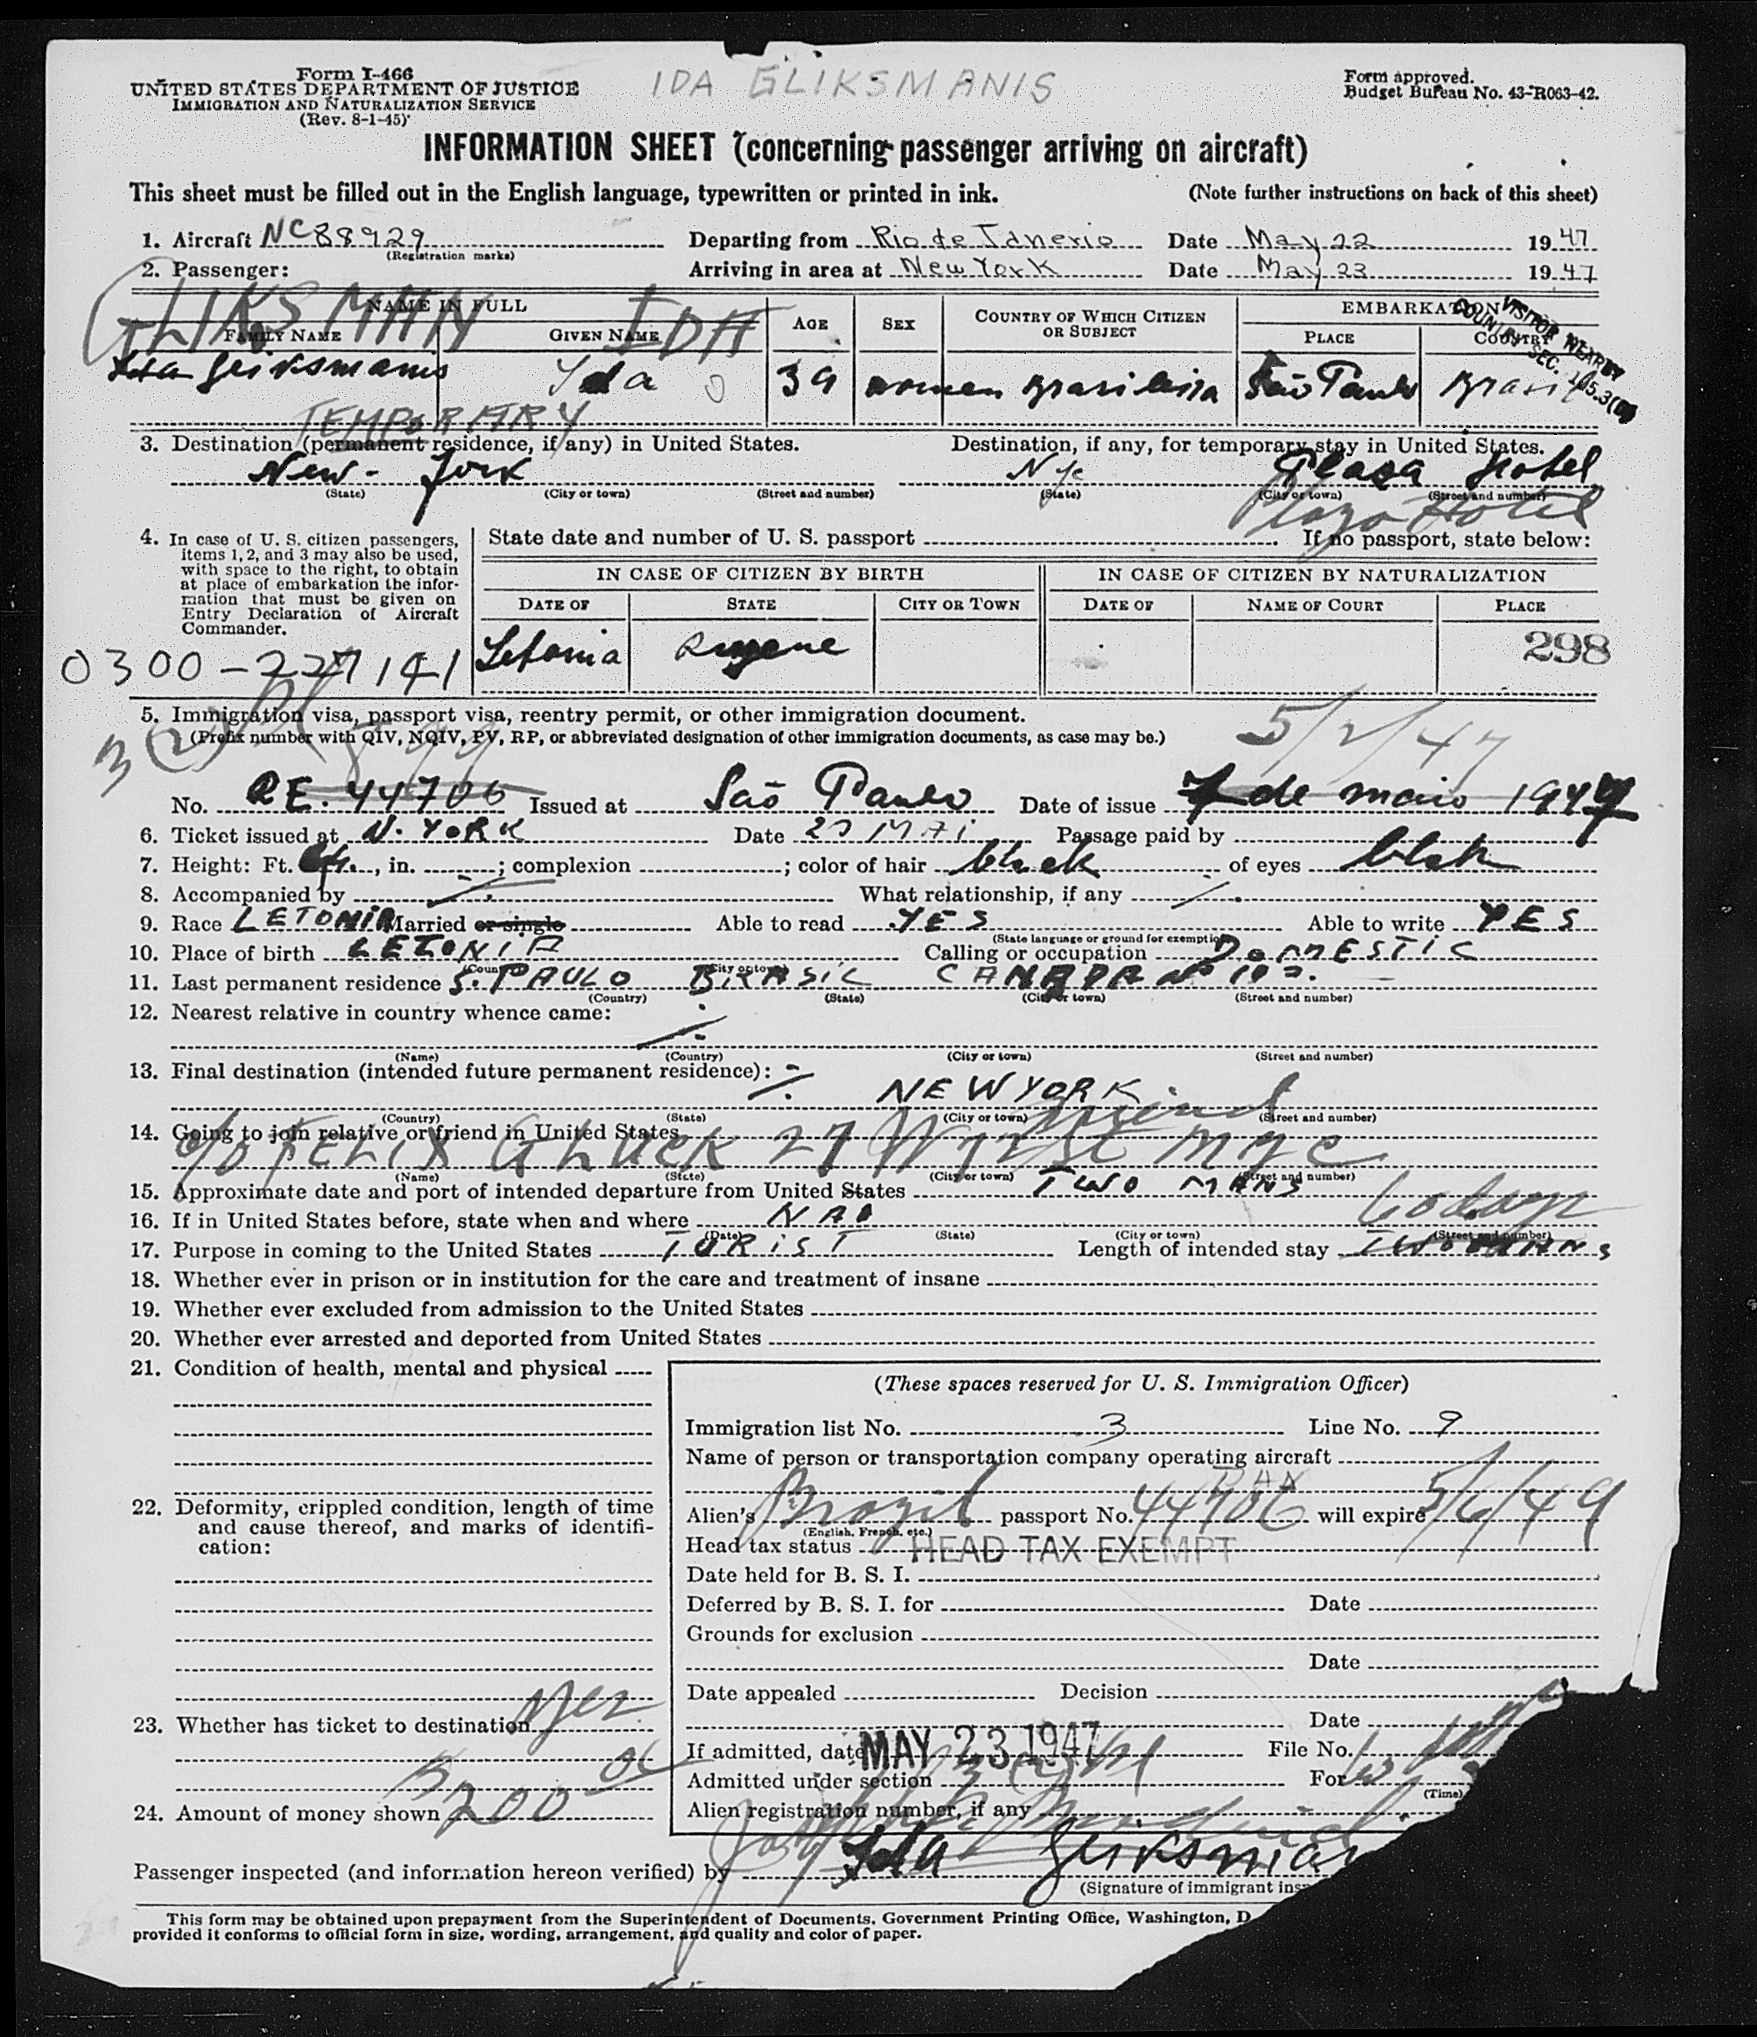 Form I-466
UNITED STATES DEPARTMENT OF JUSTICE
IMMIGRATION AND NATURALIZATION SERVICE
(Rev. 8-1-45)
IDA GLIKSMANIS
Form approved.
Budget Bureau No. 43-R063-42.
INFORMATION SHEET (concerning passenger arriving on aircraft)
This sheet must be filled out in the English language, typewritten or printed in ink.
(Note further instructions on back of this sheet)
1. Aircraft NC88929 Departing from Rio de Janerio Date May 22 1947
(Registration marks)
2. Passenger: Arriving in area at New York Date May 23 1947
GLIKSMAN IDA
NAME IN FULL
FAMILY NAME GIVEN NAME AGE SEX COUNTRY OF WHICH CITIZEN OR SUBJECT EMBARKATION
PLACE COUNTRY
VISITOR NEARBY
COUNTRY SEC.
Ida Ida 39 women Brasileira São Paulo Brasil
TEMPORARY
3. Destination (permanent residence, if any) in United States. Destination, if any, for temporary stay in United States.
New-York Plasa Hotel
(State) (City or town) (Street and number) (State) (City or town) (Street and number)
Plaza Hotel
4. In case of U. S. citizen passengers, items 1, 2, and 3 may also be used, with space to the right, to obtain at place of embarkation the information that must be given on Entry Declaration of Aircraft Commander.
State date and number of U. S. passport If no passport, state below:
IN CASE OF CITIZEN BY BIRTH IN CASE OF CITIZEN BY NATURALIZATION
DATE OF STATE CITY OR TOWN DATE OF NAME OF COURT PLACE
Letonia 298
0300-227141
5. Immigration visa, passport visa, reentry permit, or other immigration document.
(Prefix number with QIV, NQIV, PV, RP, or abbreviated designation of other immigration documents, as case may be.)
3(2) 5/2/47
No. RE. 44706 Issued at São Paulo Date of issue 7 de maio 1947
6. Ticket issued at N. YORK Date Passage paid by
7. Height: Ft. , in. ; complexion ; color of hair black of eyes blak
8. Accompanied by What relationship, if any
9. Race LETONIA Married or single Able to read YES Able to write YES
(State language or ground for exemption)
10. Place of birth LETONIA Calling or occupation DOMESTIC
(Country) (City or town)
11. Last permanent residence S. PAULO BRASIL CANADA
(Country) (State) (City or town) (Street and number)
12. Nearest relative in country whence came:
(Name) (Country) (City or town) (Street and number)
13. Final destination (intended future permanent residence):
NEW YORK
(Country) (State) (City or town) (Street and number)
14. Going to join relative or friend in United States friend
c/o FELIX GLUCK 27 W St NYC
(Name) (State) (City or town) (Street and number)
15. Approximate date and port of intended departure from United States TWO MANS
16. If in United States before, state when and where NAO
60 days
(Date) (State) (City or town) (Street and number)
17. Purpose in coming to the United States TURIST Length of intended stay
18. Whether ever in prison or in institution for the care and treatment of insane
19. Whether ever excluded from admission to the United States
20. Whether ever arrested and deported from United States
21. Condition of health, mental and physical
22. Deformity, crippled condition, length of time and cause thereof, and marks of identification:
23. Whether has ticket to destination yes
24. Amount of money shown $200 00
(These spaces reserved for U. S. Immigration Officer)
Immigration list No. 3 Line No. 9
Name of person or transportation company operating aircraft
PAA
Alien's Brazil passport No. 44706 will expire 5/6/49
(English, French, etc.)
Head tax status HEAD TAX EXEMPT
Date held for B. S. I.
Deferred by B. S. I. for Date
Grounds for exclusion
Date
Date appealed Decision
Date
If admitted, date MAY 23 1947 File No.
Admitted under section 3(2) For
(Time)
Alien registration number, if any
Passenger inspected (and information hereon verified) by Ida
(Signature of immigrant
This form may be obtained upon prepayment from the Superintendent of Documents, Government Printing Office, Washington, D
provided it conforms to official form in size, wording, arrangement, and quality and color of paper.